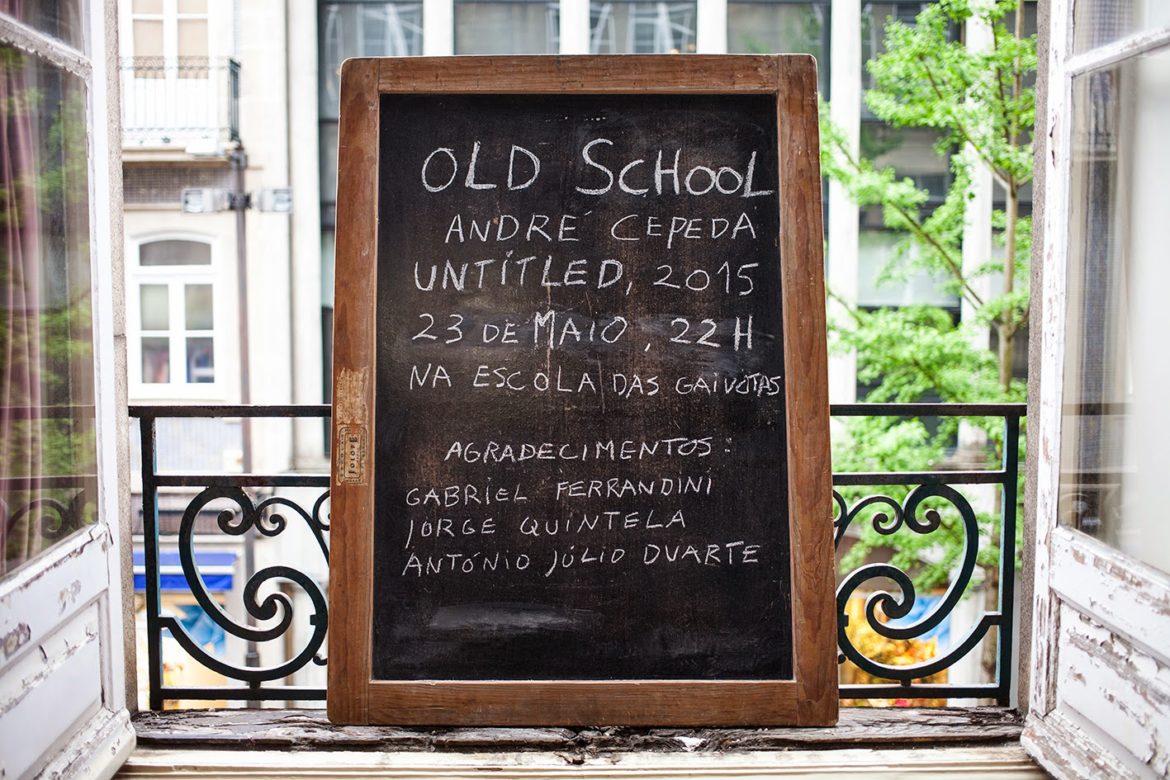 OLD SCHOOL
ANDRÉ CEPEDA
UNTITLED, 2015
23 DE MAIO, 22H
NA ESCOLA DAS GAIVOTAS
AGRADECIMENTOS:
GABRIEL FERRANDINI
JORGE QUINTELA
ANTÓNIO JÚLIO DUARTE